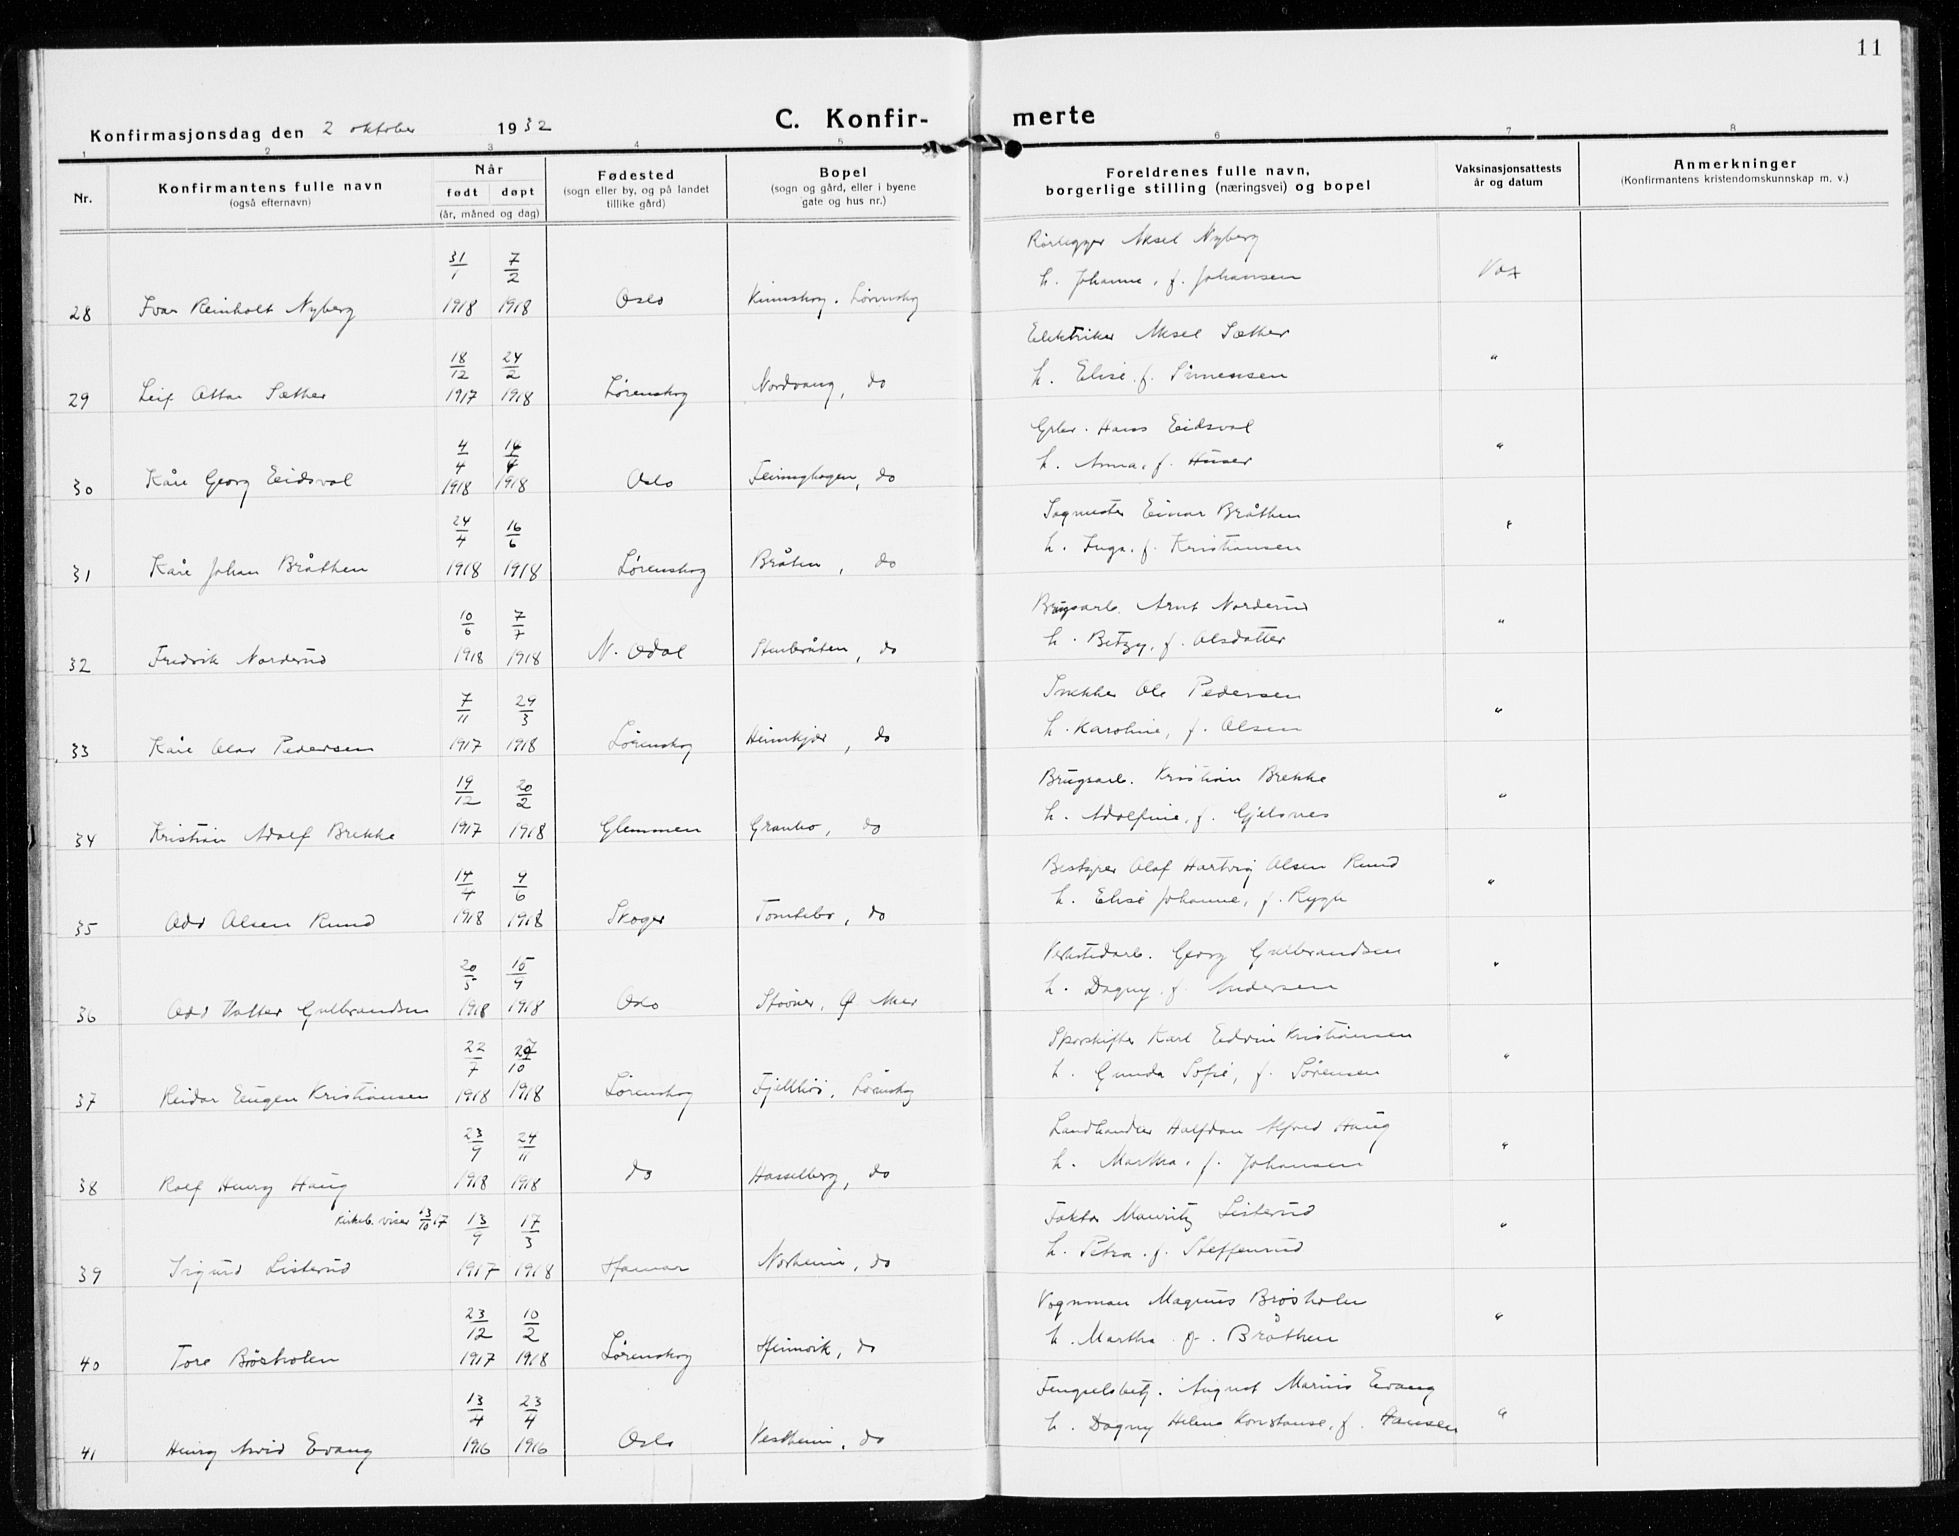 11
Konfirmasjonsdag den 2 oktober 1932 C. Konfir- merte
1 2 3 4 5 6 7 8
Nr. Konfirmantens fulle navn (også efternavn) Når født døpt (år, måned og dag) Fødested (sogn eller by, og på landet tillike gård) Bopel (sogn og gård, eller i byene gate og hus nr.) Foreldrenes fulle navn, borgerlige stilling (næringsvei) og bopel Vaksinasjonsattests år og datum Anmerkninger (Konfirmantens kristendomskunnskap m. v.)
31/1 7/2 Rørlegger Aksel Nyberg
28 Ivar Reinholt Nyberg 1918 1918 Oslo Kinnskog. Lørenskog h. Johanne, f. Johansen Vax
18/12 24/2 Elektriker Aksel Sæther
29 Leif Ottar Sæther 1917 1918 Lørenskog Nordvang, do h. Elise f. Simensen "
4/4 14/4 Grbr. Hans Eidsvol
30 Kåre Georg Eidsvol 1918 1918 Oslo do h. Anna, f. Huser "
24/4 16/6 Sagmester Einar Bråthen
31 Kåre Johan Bråthen 1918 1918 Lørenskog Bråten, do h. Inga. f. Kristiansen "
10/6 7/7 Brugsarb. Arnt Norderud
32 Fredrik Norderud 1918 1918 N. Odal Stenbråten, do h. Betzy, f. Olsdatter "
7/11 29/3 Snekker Ole Pedersen
33 Kåre Olav Pedersen 1917 1918 Lørenskog Heimkjær, do h. Karoline, f. Olsen "
19/12 20/2 Brugsarb. Kristian Brekke
34 Kristian Adolf Brekke 1917 1918 Glemmen Granbo, do h. Adolfine, f. Gjelsnes "
14/4 9/6 Bestyrer Olaf Hartvig Olsen Rund
35 Odd Olsen Rund 1918 1918 Skoger Tomtebo, do h. Elise Johanne, f. Rygh "
20/5 15/9 Verkstedarb. Georg Gulbrandsen
36 Odd Valter Gulbrandsen 1918 1918 Oslo Støver, Ø. Aker h. Dagny f. Andersen "
22/7 27/10 Sporskifter Karl Edvin Kristiansen
37 Reidar Eugen Kristiansen 1918 1918 Lørenskog Fjellhøi, Lørenskog h. Gunda Sofie, f. Sørensen "
23/9 24/11 Landhandler Halfdan Alfred Haug
38 Rolf Henry Haug 1918 1918 do Hasselberg, do h. Martha, f. Johansen "
Kirkeb. viser 13/10 17 13/9 17/3 Faktor Mauritz Listerud
39 Sigurd Listerud 1917 1918 Hamar Norheim, do h. Petra. f. Steffensrud "
23/12 10/2 Vognman Magnus Børsholen
40 Tore Børsholen 1917 1918 Lørenskog Heimvik, do h. Martha f. Bråthen "
13/4 23/4 Fengselsbetj. August Marius Evang
41 Henry Arvid Evang 1916 1916 Oslo Vestheim, do h. Dagny Helene Konstanse, f. Hansen "